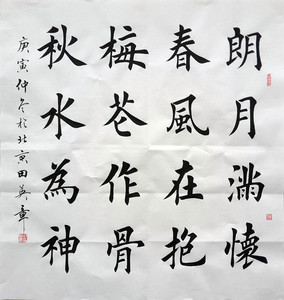 朗月滿懷
春風在抱
梅花作骨
秋水為神
庚寅仲冬於北京田英章